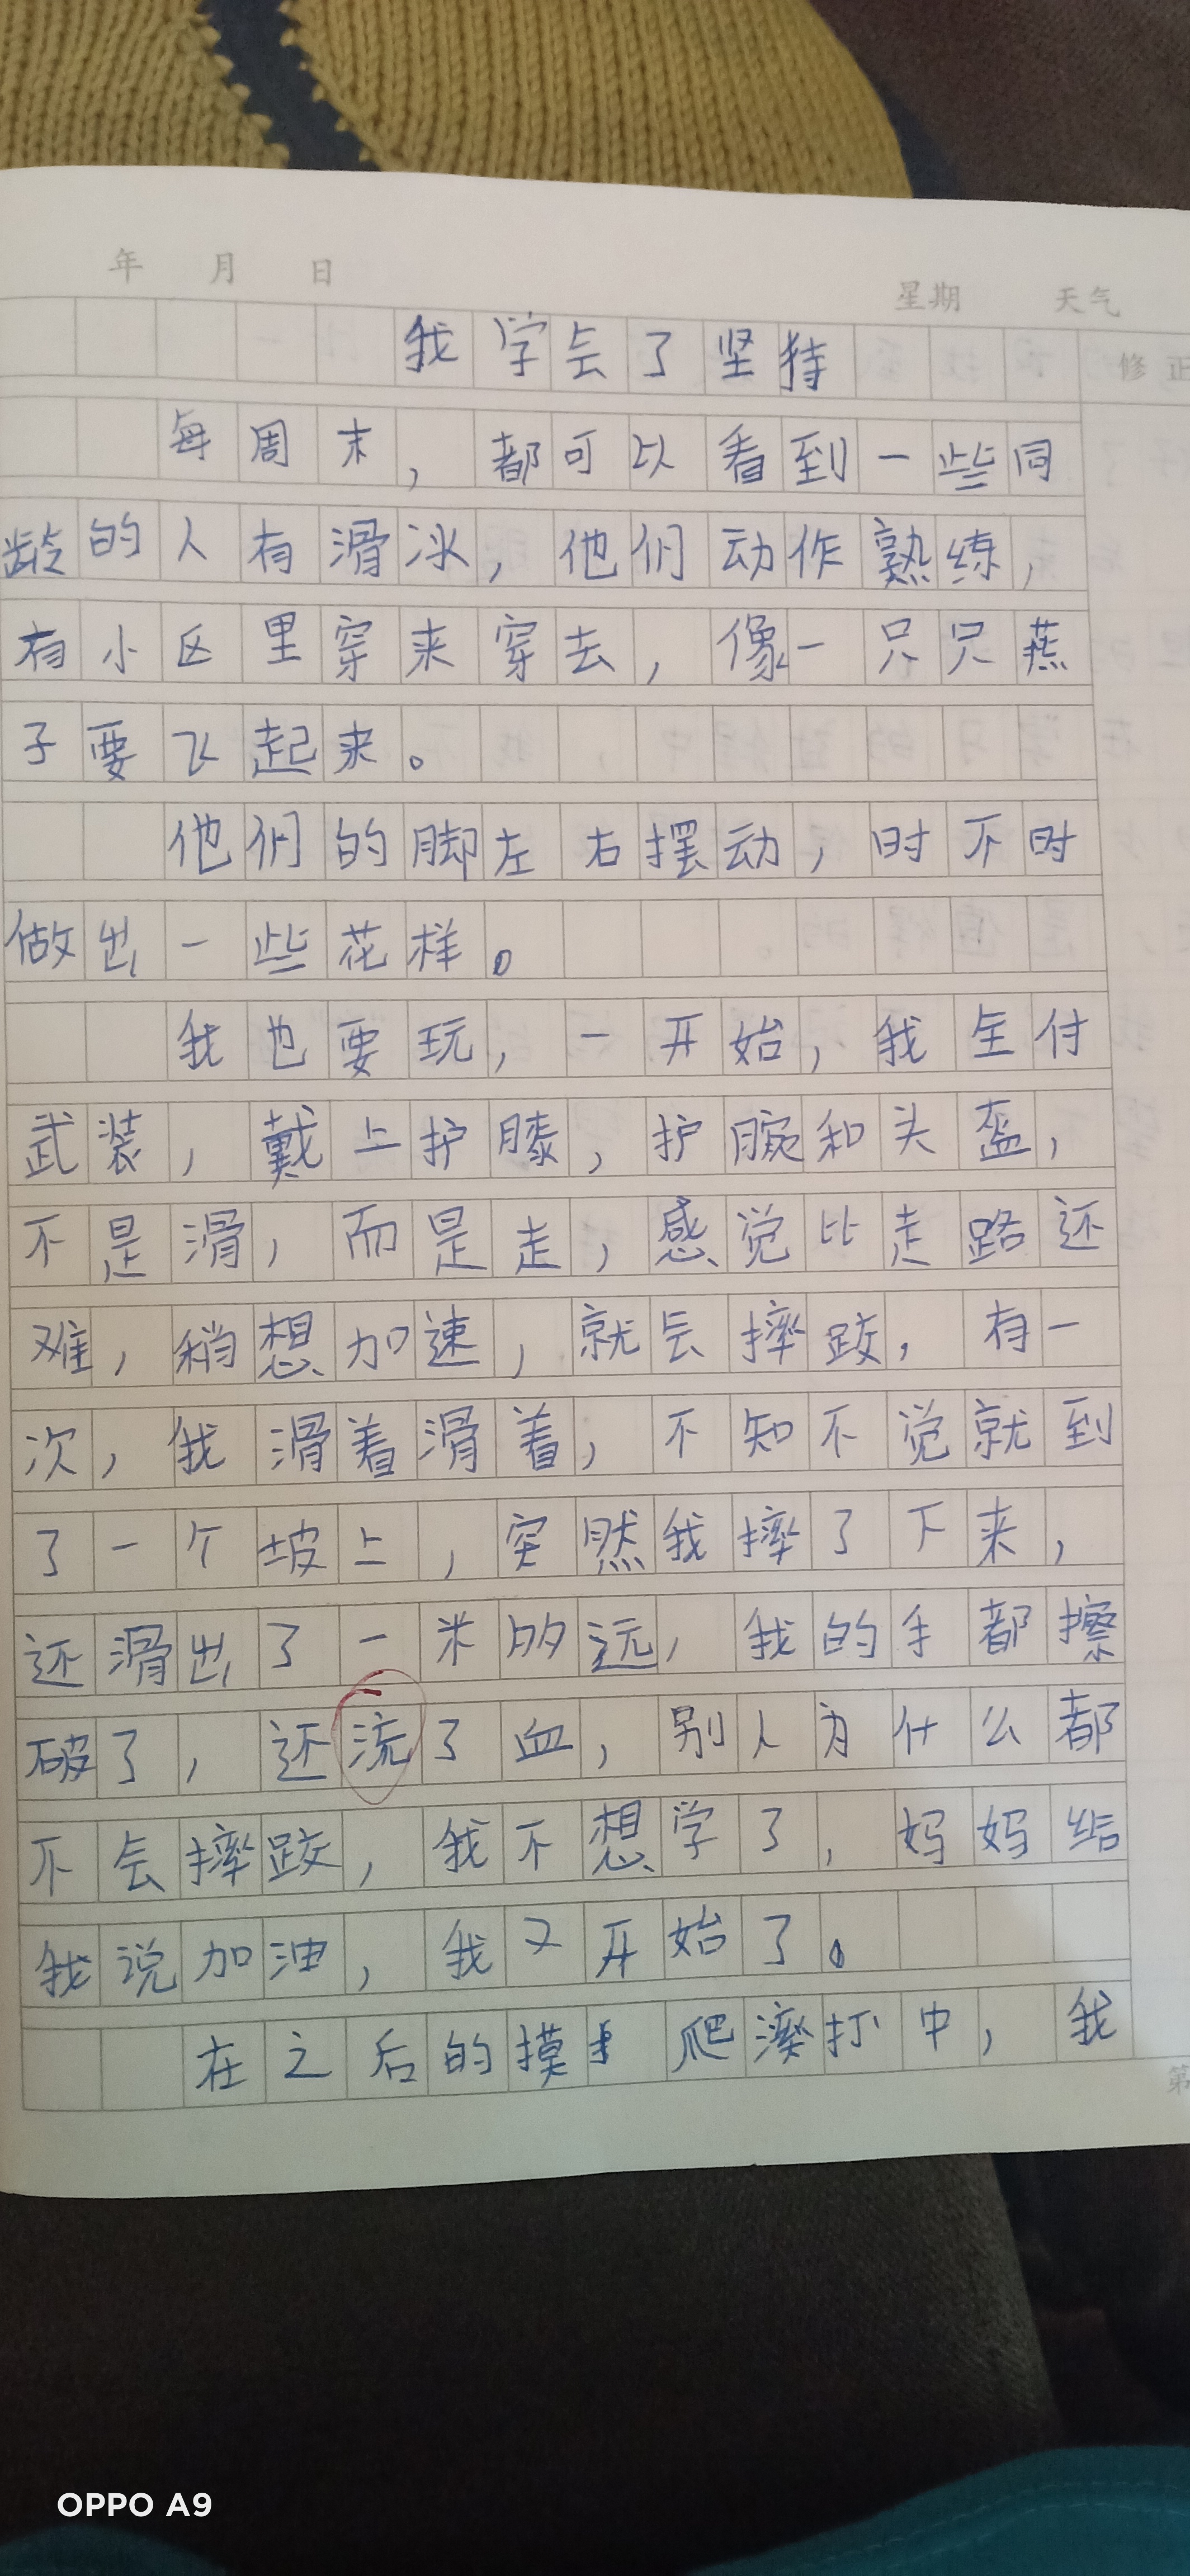 年 月 日
星期 天气
我学会了坚持
修正
每周末，都可以看到一些同
龄的人有滑冰，他们动作熟练，
有小区里穿来穿去，像一只只燕
子要飞起来。
他们的脚左右摆动，时不时
做出一些花样。
我也要玩，一开始，我全付
武装，戴上护膝，护腕和头盔，
不是滑，而是走，感觉比走路还
难，稍想加速，就会摔跤，有一
次，我滑着滑着，不知不觉就到
了一个坡上，突然我摔了下来，
还滑出了一米的远，我的手都擦
破了，还流了血，别人为什么都
不会摔跤，我不想学了，妈妈给
我说加油，我又开始了。
在之后的摸爬滚打中，我
第
OPPO A9